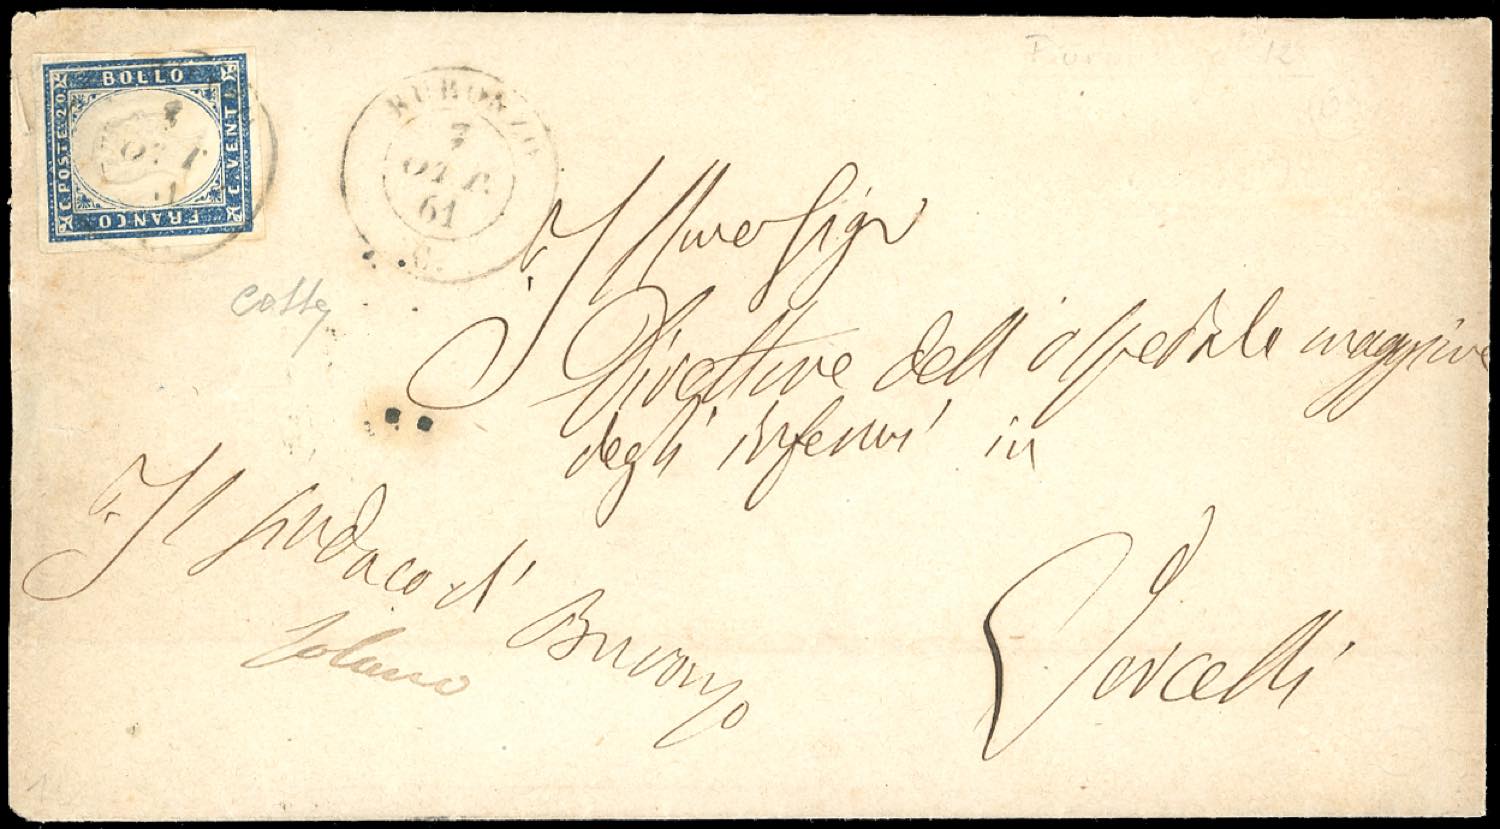 BOLLO
C. POSTE 20
C. VENTI
FRANCO
BURONZO
7
OTT.
61
Illmo Sigr
Direttore dell' ospedale maggiore
degli infermi in
Vercelli
Il sindaco di Buronzo